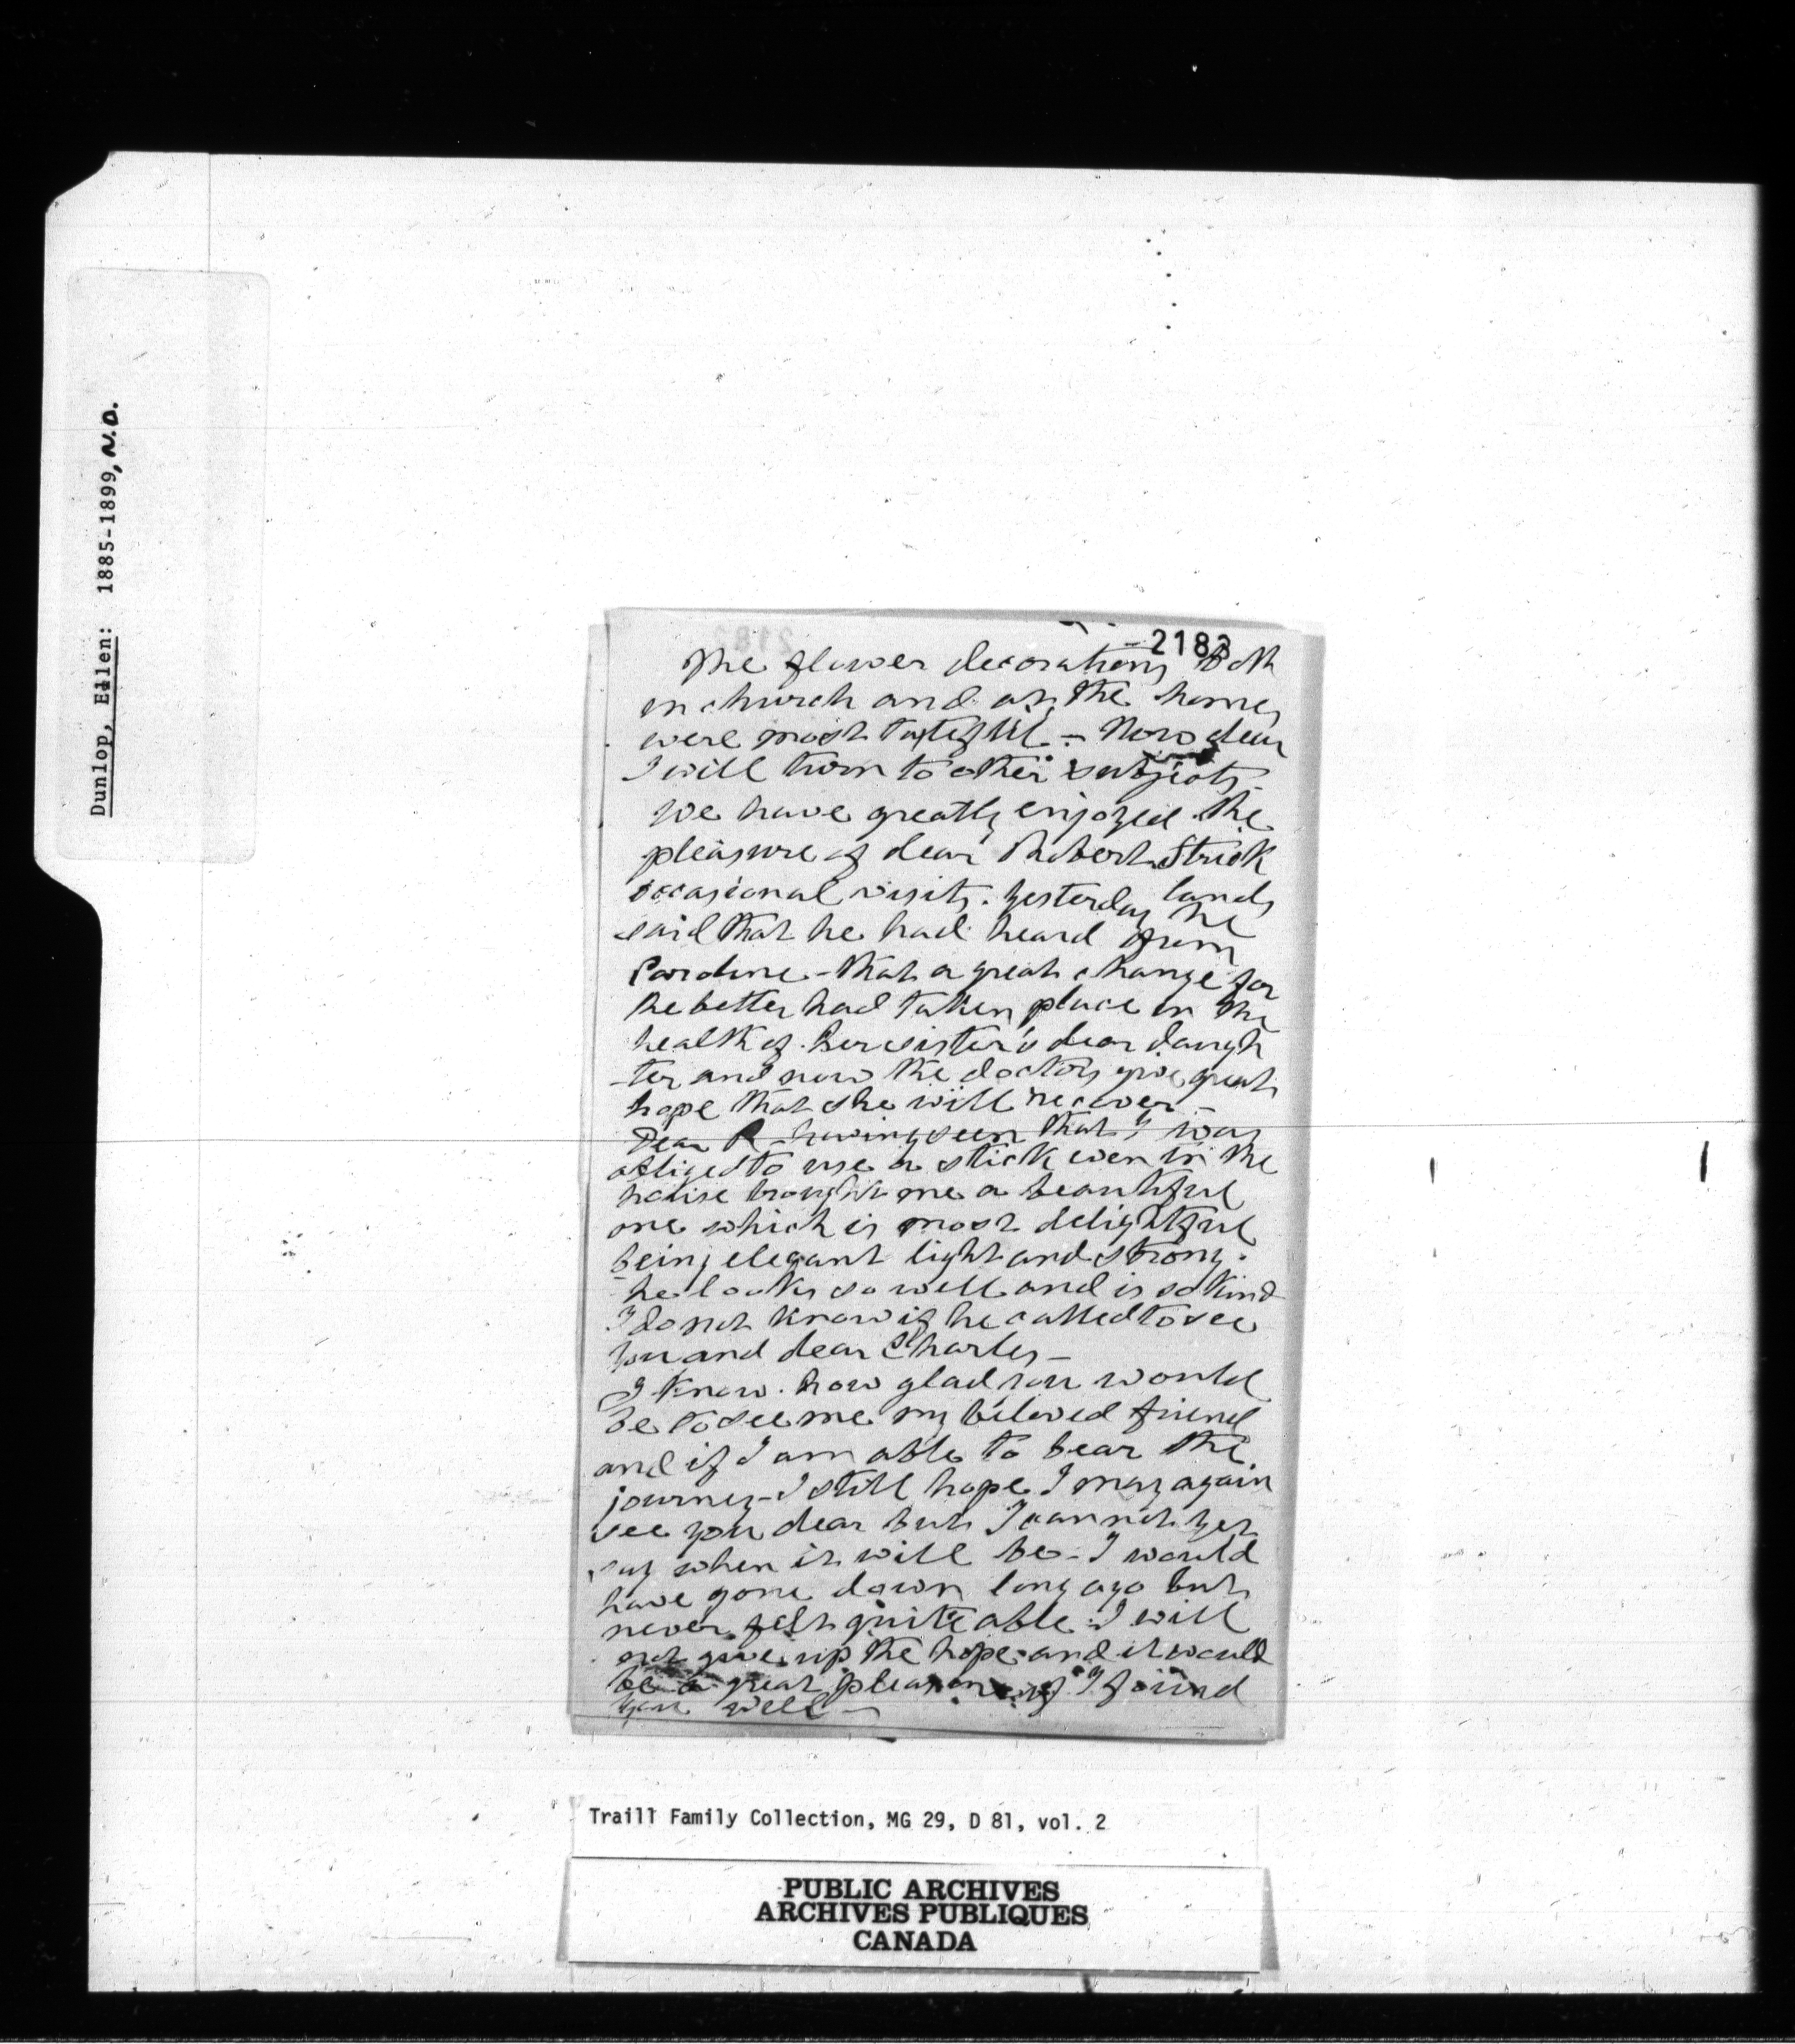 Dunlop, Ellen: 1885-1899, N.D.
2183
The flower decorations both
in church and at the home,
were most tasteful - Now dear
I will turn to other subjects.
We have greatly enjoyed the
pleasure of dear Robert Strick
lands
occasional visits. Yesterday he
said that he had heard from
Caroline - that a great change for
the better had taken place in the
health of her sister's dear daugh
-ter and now the doctors give great
hope that she will recover -
Dear R - having seen that I was
obliged to use a stick even in the
house brought me a beautiful
one which is most delightful
being elegant light and strong.
he looks so well and is so kind
I do not know if he called to see
you and dear Charles -
I know how glad you would
be to see me my beloved friend
and if I am able to bear the
journey - I still hope I may again
see you dear but I cannot yet
say when it will be - I would
have gone down long ago but
never felt quite able - I will
not give up the hope and it would
be a great pleasure if I found
you well -
Traill Family Collection, MG 29, D 81, vol. 2
PUBLIC ARCHIVES
ARCHIVES PUBLIQUES
CANADA